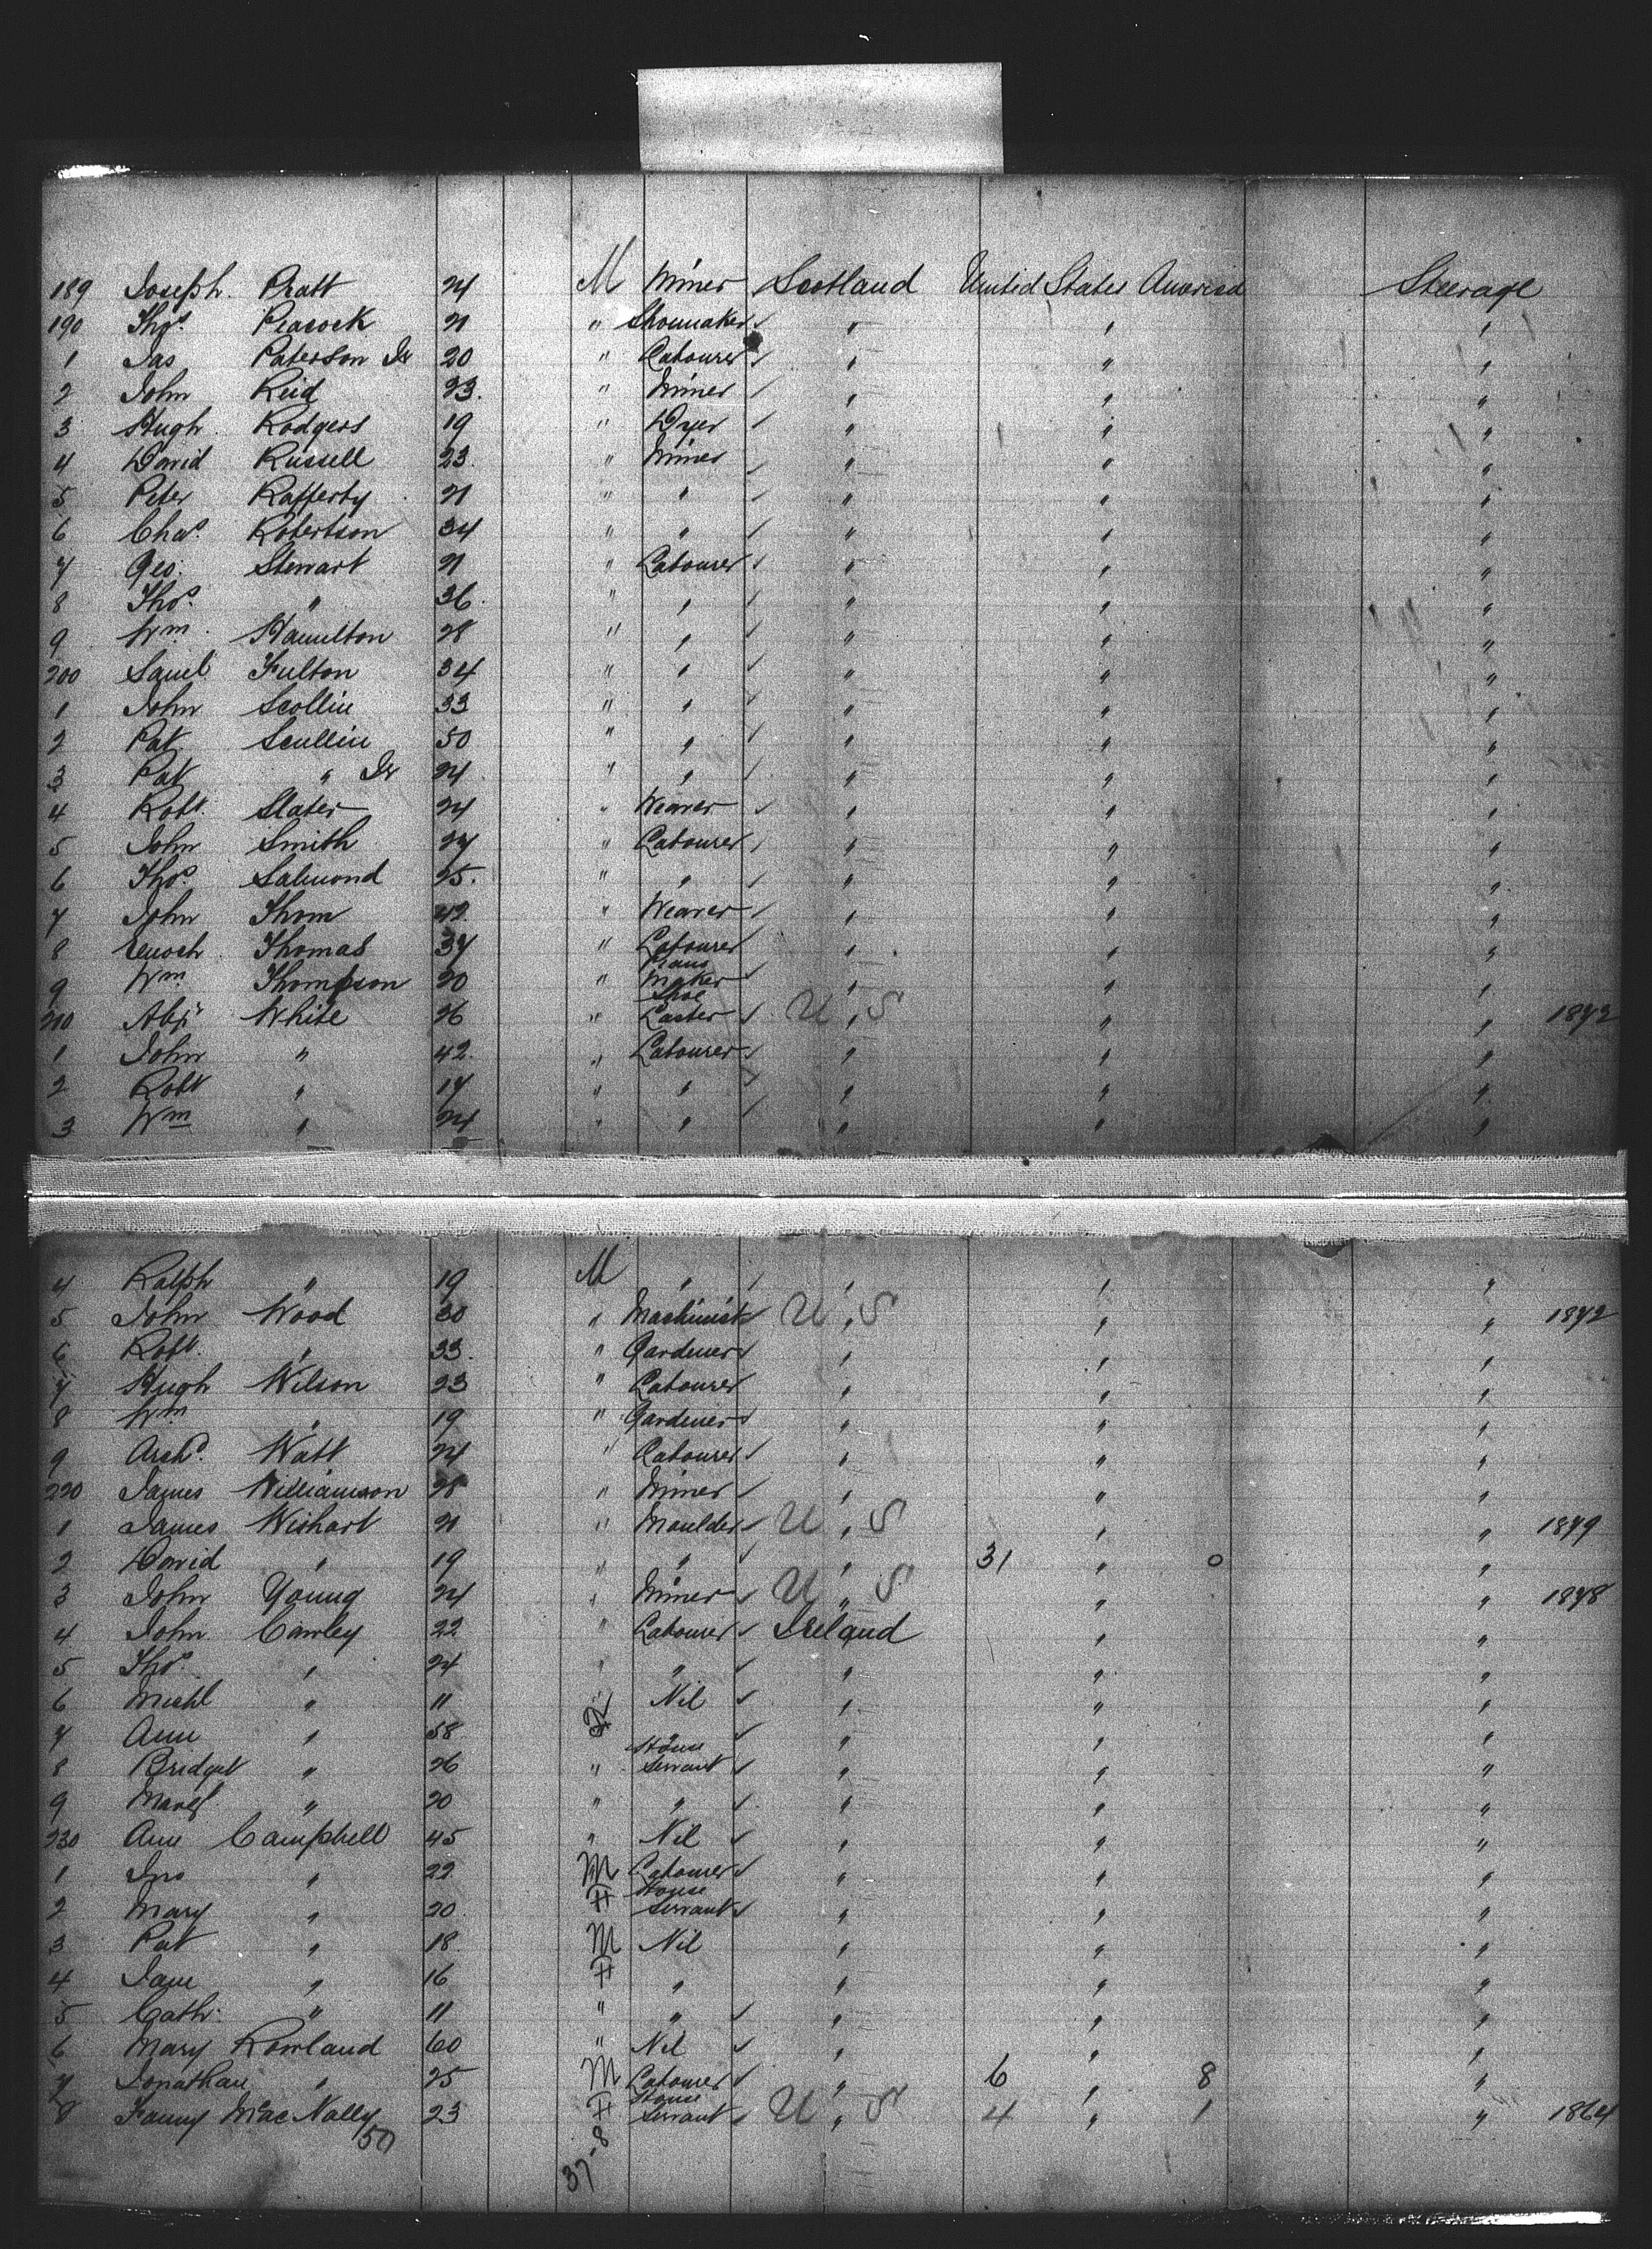 189 Joseph Pratt 24 M Miner Scotland United States America Steerage
190 Thos. Peacock 21 " Shoemaker " " "
1 Jas Paterson Jr 20 " Labourer " " "
2 John Reid 23. " Miner " " "
3 Hugh Rodgers 19 " Dyer " " "
4 David Russell 23. " Miner " " "
5 Peter Rafferty 21 " " " " "
6 Chas. Robertson 34 " " " " "
7 Geo: Stewart 21 " Labourer " " "
8 Thos. " 36. " " " " "
9 Wm. Hamilton 28 " " " " "
200 Saml. Fulton 34 " " " " "
1 John Scollin 33 " " " " "
2 Pat Scullin 50 " " " " "
3 Pat " Jr 24 " " " " "
4 Robt. Slater 24 " Weaver " " "
5 John Smith 27 " Labourer " " "
6 Thos. Salmond 25. " " " " "
7 John Thom 42. " Weaver " " "
8 Enoch Thomas 37 " Labourer " " "
9 Wm. Thompson 20 " Piano Maker " " "
210 Alexr White 26 " Shoe Laster U " S " " 1872
1 John " 42. " Labourer " " "
2 Robt " 17 " " " " "
3 Wm " 24 " " " " "
4 Ralph " 19 M " " " "
5 John Wood 30 " Machinist U " S " " 1872
6 Robt. " 33. " Gardener " " "
7 Hugh Wilson 23 " Labourer " " "
8 Wm " 19 " Gardener " " "
9 Archd. Watt 24 " Labourer " " "
220 James Williamson 28 " Miner " " "
1 James Wishart 21 " Moulder U " S " " 1879
2 David " 19 " " " 31 " 0 "
3 John Young 24 " Miner U " S " " 1878
4 John Cawley 22 " Labourer Ireland " "
5 Thos. " 24 " " " " "
6 Michl " 11 " Nil " " "
7 Ann " 58 F " " " "
8 Bridget " 26 " House Servant " " "
9 Margt. " 20 " " " " "
230 Ann Campbell 45 " Nil " " "
1 Jno " 22 M Labourer " " "
2 Mary " 20 F House Servant " " "
3 Pat " 18 M Nil " " "
4 Jane " 16 F " " " "
5 Cath: " 11 " " " " "
6 Mary Rowland 60 " Nil " " "
7 Jonathan " 25 M Labourer " 6 " 8 "
8 Fanny MacNally 23 F House Servant U " S 4 " 1 " 1864
50
37-8